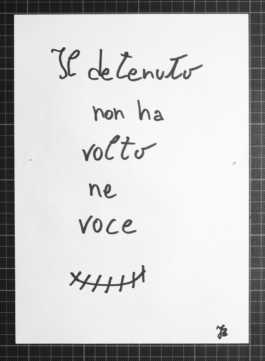 Il detenuto
non ha
volto
ne
voce